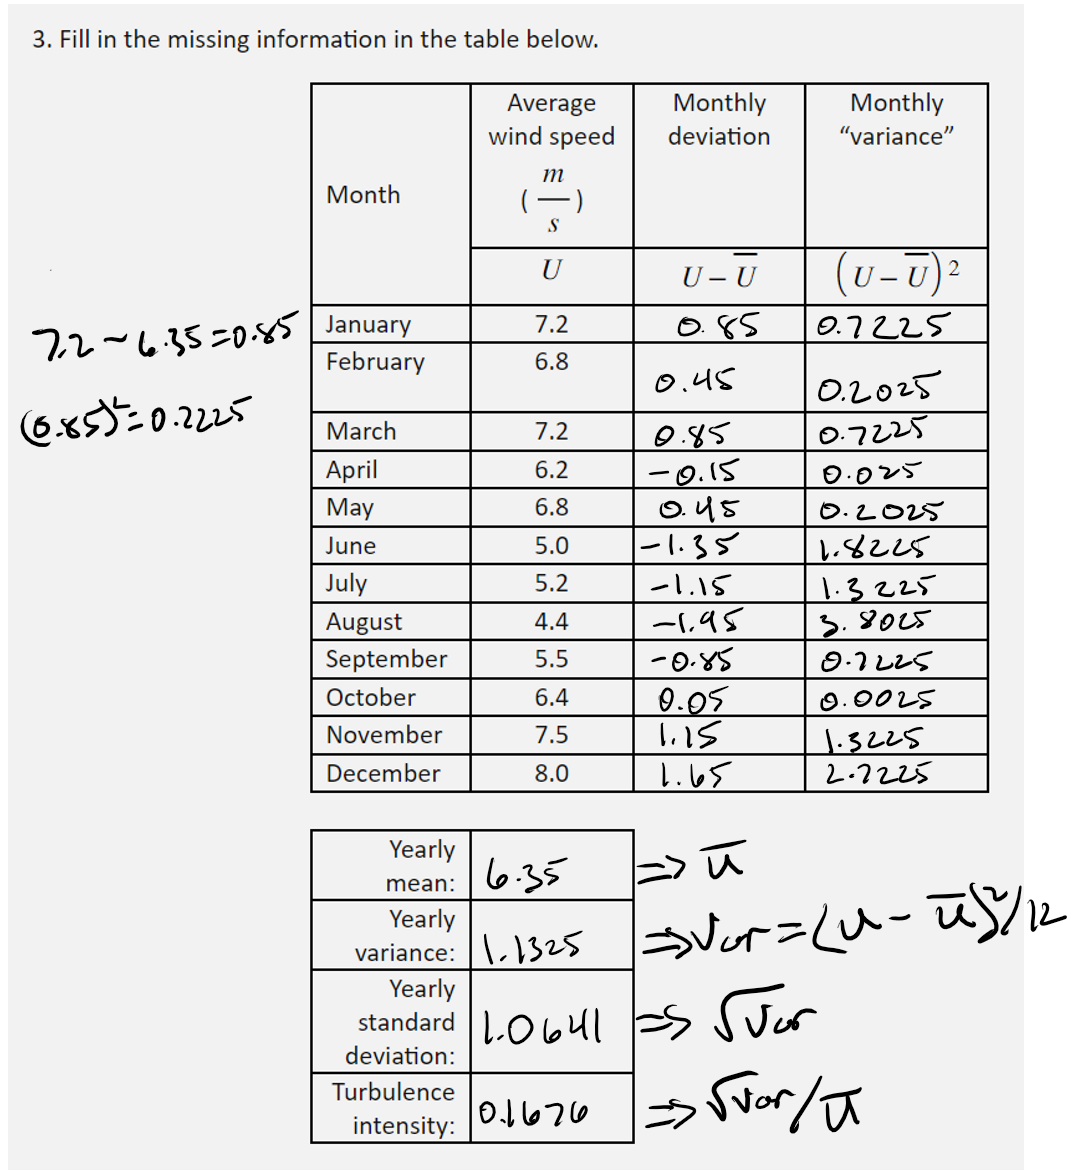 3. Fill in the missing information in the table below.
Month
Average wind speed (m/s)
Monthly deviation
Monthly “variance”
U
U – U̅
(U – U̅)²
7.2 – 6.35 = 0.85
(0.85)² = 0.7225
January 7.2 0.85 0.7225
February 6.8 0.45 0.2025
March 7.2 0.85 0.7225
April 6.2 -0.15 0.025
May 6.8 0.45 0.2025
June 5.0 -1.35 1.8225
July 5.2 -1.15 1.3225
August 4.4 -1.95 3.8025
September 5.5 -0.85 0.7225
October 6.4 0.05 0.0025
November 7.5 1.15 1.3225
December 8.0 1.65 2.7225
Yearly mean: 6.35 ⇒ u̅
Yearly variance: 1.1325 ⇒ Var = (u - u̅)²/12
Yearly standard deviation: 1.0641 ⇒ √Var
Turbulence intensity: 0.1676 ⇒ √var/u̅